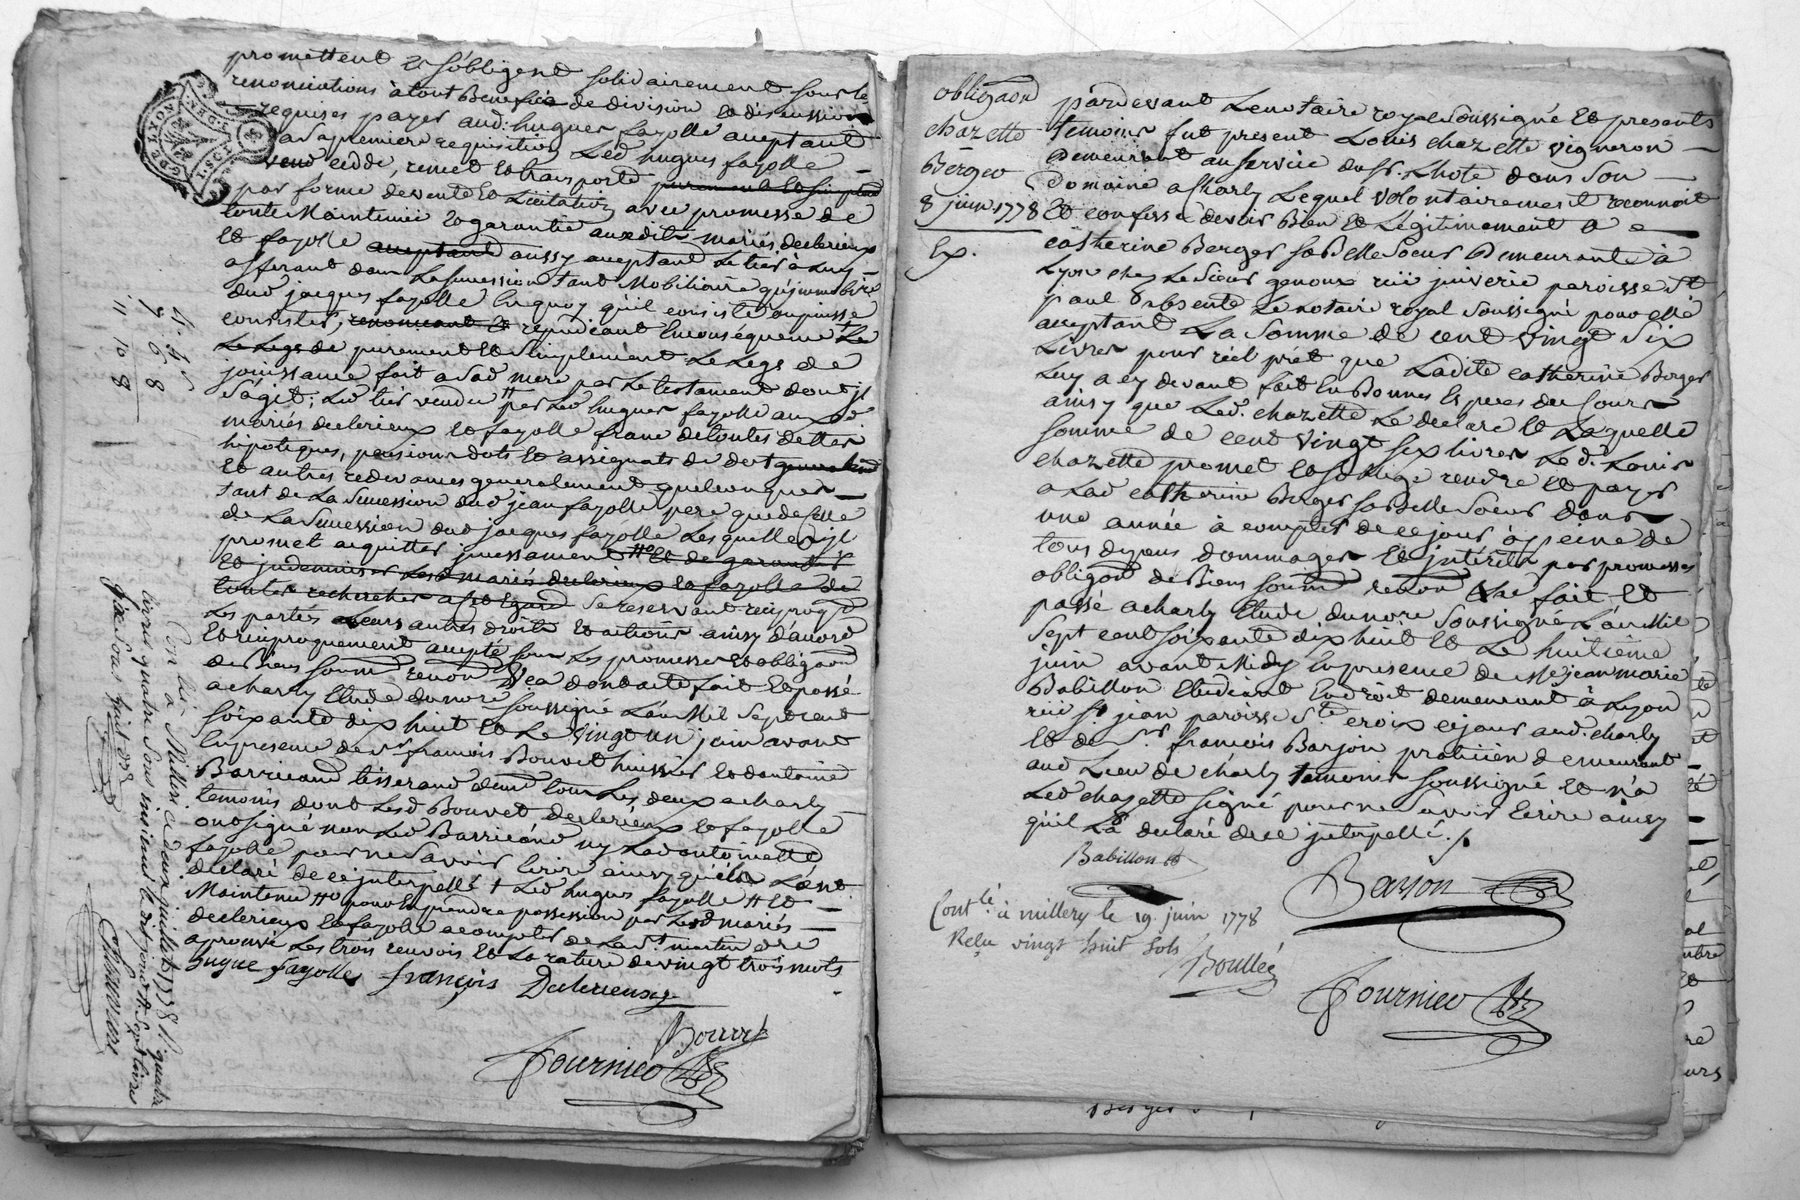 promettent et s'obligent solidairement sous les
renonciations à tout Benefice de division et discussion
requises payer aud. hugues fayolle acceptant
a sa premiere requisition Led hugues fayolle
vend cedde, remet et transporte purement et simplement
par forme de vente et Licitation avec promesse de
toute Maintenue et garantie auxdits mariés declerieux
et fayolle acceptant aussy acceptant Le tiers à Luy
afferant dans La succession tant Mobiliaire qu'immobiliere
dud jacques fayolle En quoy qu'il consiste ou puisse
consister, renoncant et repudiant En consequence Le
Le Legs de purement et simplement Le Legs de
jouissance fait a sad mere par Le testament dont il
s'agit; Led tiers vendu par Led hugues fayolle aux d.
mariés declerieux et fayolle franc de toutes dettes
hipoteques, pensions dots et assignats de dot generalement
et autres redevances generalement quelconques
tant de La succession dud jean fayolle pere que de Celle
de La succession dud jacques fayolle Lesquelles il
promet acquitter puissament et de garantir
et indemniser Lesd mariés declerieux et fayolle de
toutes recherches a Cet Egard se reservant reciproq
Les parties Leurs autres droits et actions ainsy d'accord
et reciproquement accepté sous Les promesses et obligaon
de Biens soumn renonn &ca dont acte fait et passé
a charly Etude du nore soussigné L'an Mil sept cent
soixante dix huit et Le vingt un juin avant
En presence de sr francois Bouvet huissier et d'antoine
Barricand tisserand demt tous Les deux a charly
temoins dont Lesd Bouvet declerieux et fayolle
ont signé non Led Barricand ny Lad antoinette
fayolle pour ne savoir Ecrire ainsy qu'ils L'ont
declaré de ce interpellé + Led hugues fayolle # et
Maintenu # pour En prendre possession par Lesd mariés
declerieux et fayolle a compter de La st martin
aprouvé Les trois renvois et La rature de vingt trois mots
hugue fayolle françois Declerieux
Bouvet
Fournier
4
7 6 8
11 10 8
Con lé à Millery a deux juillet 1778 R quatre
livres quatre sous
GDE LYON
obligaon
chazette
Berger
8 juin 1778
Ex.
pardevant Le notaire royal soussigné et presents
temoins fut present Louis chazette vigneron
demeurant au service du sr. Lhote dans son
domaine a Charly Lequel volontairement reconnoit
et confesse devoir Bien et Légitimement a
catherine Berger sa Belle soeur Demeurante à
Lyon chez Le sieur genoux rue juiverie paroisse st
paul absente Le notaire royal soussigné pour elle
acceptant La somme de cent vingt six
Livres pour réel prêt que Ladite catherine Berger
Luy a cy devant fait En Bonnes Especes du Cours
ainsy que Led. chazette Le declare et Laquelle
somme de cent vingt six livres Led. Louis
chazette promet et s'oblige rendre et payer
a Lad catherine Berger sa Belle soeur dans
une année à compter de ce jour à peine de
tous depens dommages et interêts par promesses
obligaon de Biens soumn renon &ca fait et
passé a charly Etude du nore soussigné L'an Mil
sept cent soixante dix huit et Le huitième
juin avant Midy En presence de Me jean marie
Babillon Etudiant En droit demeurant à Lyon
rue st jean paroisse ste croix ce jour aud. charly
et de sr. francois Barjon praticien demeurant
aud Lieu de charly temoins soussigné et n'a
Led chazette signé pour ne savoir Ecrire ainsy
qu'il L'a declaré de ce interpellé ./.
Babillon
Barjon
Contlé à millery le 19 juin 1778
Reçu vingt huit sols
Boullée
Fournier